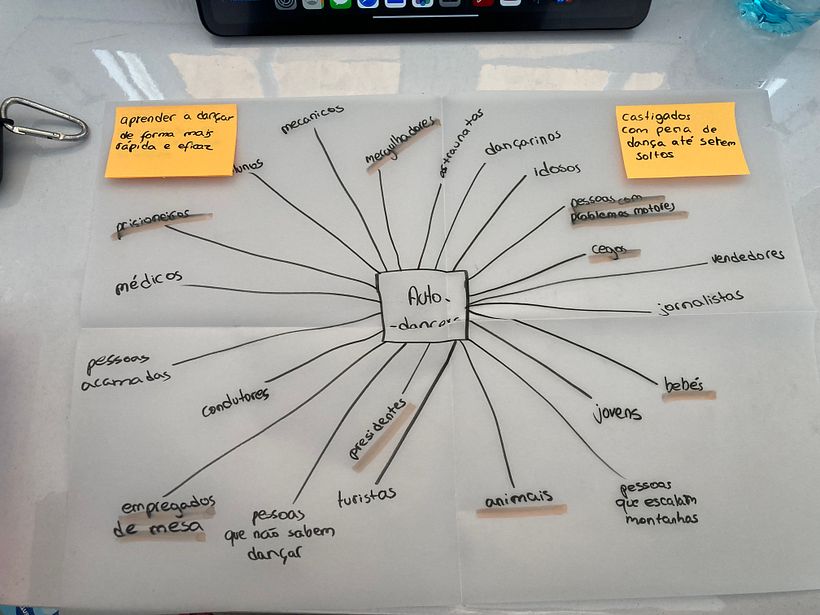 aprender a dançar
de forma mais
rápida e eficaz
Castigados
com pena de
dança até serem
soltos
mecanicos
mergulhadores
astraunatas
dançarinos
idosos
pessoas com
problemas motores
cegos
vendedores
jornalistas
bebés
jovens
pessoas
que escalam
montanhas
animais
turistas
presidentes
pessoas
que não sabem
dançar
empregados
de mesa
condutores
pessoas
acamadas
médicos
prisioneiros
lunos
Auto-
-dancer